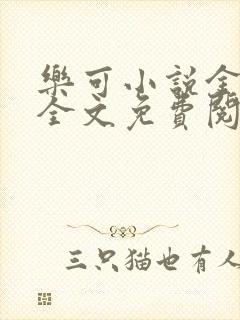 樂可小說全
全文免費閱
三只猫也有人